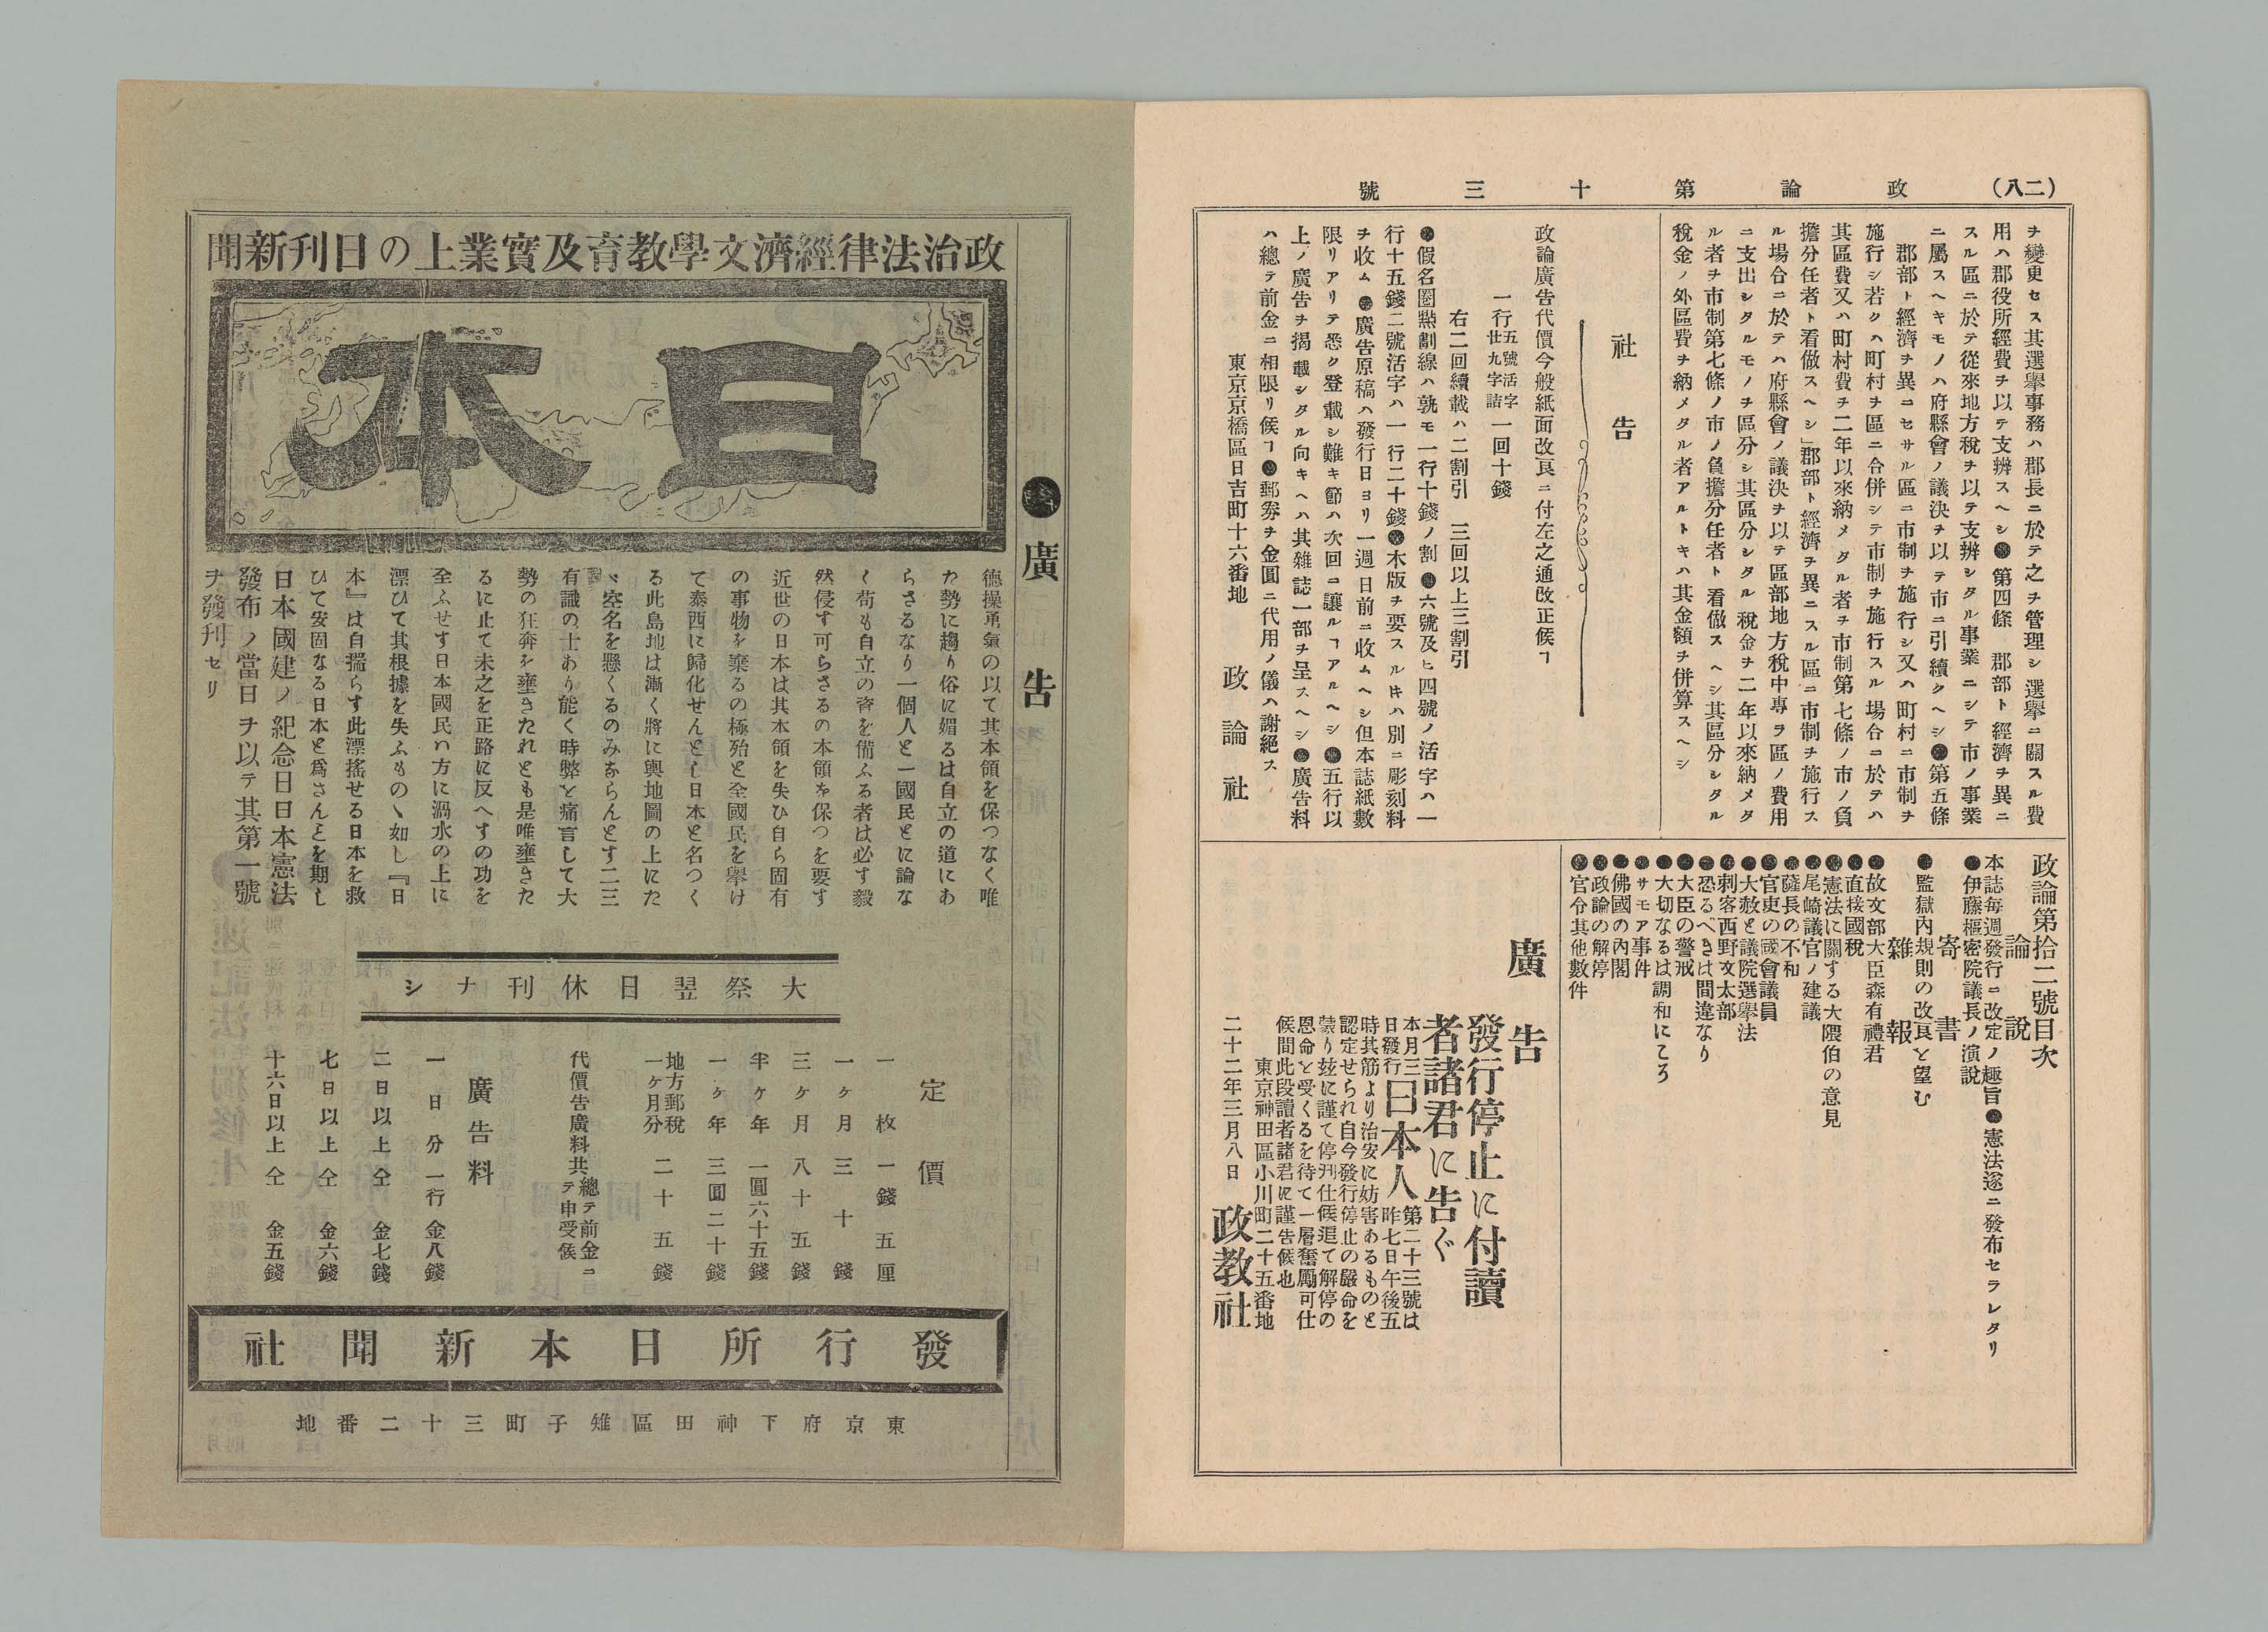 (二八)
政論第十三號
ヲ變更セス其選擧事務ハ郡長ニ於テ之ヲ管理シ選擧ニ關スル費
用ハ郡役所經費ヲ以テ支辨スヘシ●第四條　郡部ト經濟ヲ異ニ
スル區ニ於テ從來地方稅ヲ以テ支辨シタル事業ニシテ市ノ事業
ニ屬スヘキモノハ府縣會ノ議決ヲ以テ市ニ引續クヘシ●第五條
郡部ト經濟ヲ異ニセサル區ニ市制ヲ施行シ又ハ町村ニ市制ヲ
施行シ若クハ町村ヲ區ニ合併シテ市制ヲ施行スル場合ニ於テハ
其區費又ハ町村費ヲ二年以來納メタル者ヲ市制第七條ノ市ノ負
擔分任者ト看做スヘシ」郡部ト經濟ヲ異ニスル區ニ市制ヲ施行ス
ル場合ニ於テハ府縣會ノ議決ヲ以テ區部地方稅中專ラ區ノ費用
ニ支出シタルモノヲ區分シ其區分シタル稅金ヲ二年以來納メタ
ル者ヲ市制第七條ノ市ノ負擔分任者ト看做スヘシ其區分シタル
稅金ノ外區費ヲ納メタル者アルトキハ其金額ヲ併算スヘシ
社告
政論廣告代價今般紙面改良ニ付左之通改正候ヿ
一行五號活字廿九字詰一回十錢
右二回續載ハ二割引　三回以上三割引
●假名圏點劃線ハ孰モ一行十錢ノ割●六號及ヒ四號ノ活字ハ一
行十五錢二號活字ハ一行二十錢●木版ヲ要スル时ハ別ニ彫刻料
ヲ收ム●廣告原稿ハ發行日ヨリ一週日前ニ收ムヘシ但本誌紙數
限リアリテ悉ク登載シ難キ節ハ次回ニ讓ルヿアルヘシ●五行以
上ノ廣告ヲ揭載シタル向キヘハ其雜誌一部ヲ呈スヘシ●廣告料
ハ總テ前金ニ相限リ候ヿ●郵券ヲ金圓ニ代用ノ儀ハ謝絕ス
東京京橋區日吉町十六番地
政論社
政論第拾二號目次
論說
本誌每週發行ニ改定ノ趣旨●憲法遂ニ發布セラレタリ
●伊藤樞密院議長ノ演說
寄書
●監獄內規則の改良を望む
雜報
●故文部大臣森有禮君
●直接國稅
●憲法に關する大隈伯の意見
●尾崎議官ノ建議
●薩長の不和
●官吏の國會議員
●大赦と議院選擧法
●刺客西野文太郎
●恐るべきは間違なり
●大臣の警戒
●大切なるは調和にころ
●サモア事件
●佛國の內閣
●政論の解停
●官令其他數件
廣告
發行停止に付讀
者諸君に告ぐ
本月三日發行日本人第二十三號は昨七日午後五
時其筋より治安に妨害あるものと
認定せられ自今發行停止の嚴命を
蒙り玆に謹て停刋仕候追て解停の
恩命を受くるを待て一層奮勵可仕
候間此段讀者諸君に謹告候也
東京神田區小川町二十五番地
二十二年三月八日
政敎社
●廣告
政治法律經濟文學敎育及實業上の日刊新聞
日本
德操勇氣の以て其本領を保つなく唯
た勢に趨り俗に媚るは自立の道にあ
らさるなり一個人と一國民とに論な
く苟も自立の資を備ふる者は必す毅
然侵す可らさるの本領を保つを要す
近世の日本は其本領を失ひ自ら固有
の事物を棄るの極殆と全國民を擧け
て泰西に歸化せんとし日本と名つく
る此島地は漸く將に輿地圖の上にた
ゝ空名を懸くるのみならんとす二三
有識の士あり能く時弊を痛言して大
勢の狂奔を壅きたれとも是唯壅きた
るに止て未之を正路に反へすの功を
全ふせす日本國民ハ方に渦水の上に
漂ひて其根據を失ふものゝ如し『日
本』は自揣らす此漂搖せる日本を救
ひて安固なる日本と爲さんとを期し
日本國建ノ紀念日日本憲法
發布ノ當日ヲ以テ其第一號
ヲ發刊セリ
大祭翌日休刊ナシ
定價
一枚　一錢五厘
一ヶ月　三十錢
三ヶ月　八十五錢
半ヶ年　一圓六十五錢
一ヶ年　三圓二十錢
地方郵稅一ヶ月分　二十五錢
代價告廣料共總テ前金ニテ申受候
廣告料
一日分　一行　金八錢
二日以上　仝　金七錢
七日以上　仝　金六錢
十六日以上　仝　金五錢
發行所日本新聞社
東京府下神田區雉子町三十二番地